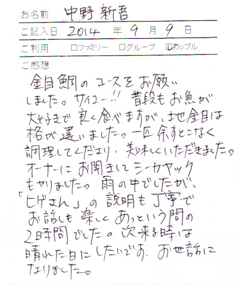 お名前 中野 新吾
ご記入日 2014 年 9 月 9 日
ご利用 □ファミリー □グループ ☑カップル
ご感想
金目鯛のコースをお願い
しました。サイコー!! 普段もお魚が
大好きで良く食べますが、地金目は
格が違いました。一匹余すとこなく
調理してくださり、美味しくいただきました。
オーナーにお聞きしてシーカヤック
もやりました。雨の中でしたが、
「ヒゲさん」の説明も丁寧で
お話しも楽しくあっという間の
2時間でした。次来る時は
晴れた日にしたいです。お世話に
なりました。